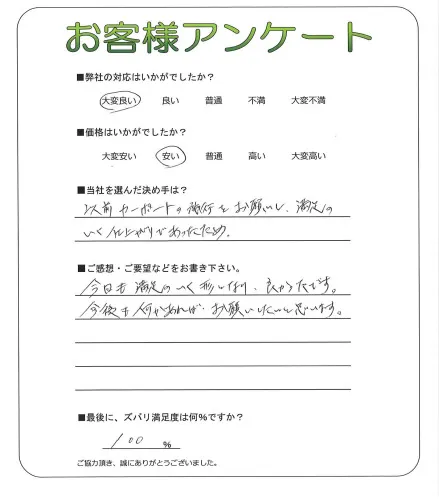 お客様アンケート
■弊社の対応はいかがでしたか?
大変良い 良い 普通 不満 大変不満
■価格はいかがでしたか?
大変安い 安い 普通 高い 大変高い
■当社を選んだ決め手は?
以前カーポートの施行をお願いし、満足の
いく仕上がりであったため。
■ご感想・ご要望などをお書き下さい。
今回も満足のいく形になり、良かったです。
今後も何かあれば、お願いしたいと思います。
■最後に、ズバリ満足度は何%ですか?
100 %
ご協力頂き、誠にありがとうございました。